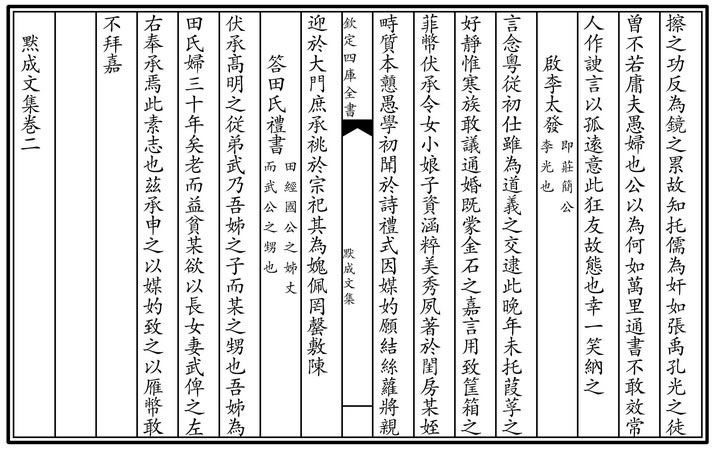 擦之功反為鏡之累故知托儒為奸如張禹孔光之徒
曾不若庸夫愚婦也公以為何如萬里通書不敢效常
人作諛言以孤遠意此狂友故態也幸一笑納之
啟李太發
即莊簡公
李光也
言念粵從初仕雖為道義之交逮此晚年未托葭莩之
好靜惟寒族敢議通婚既蒙金石之嘉言用致筐箱之
菲幣伏承令女小娘子資涵粹美秀夙著於閨房某姪
時質本戇愚學初聞於詩禮式因媒妁願結絲蘿將親
欽定四庫全書
默成文集
迎於大門庶承祧於宗祀其為媿佩罔罄敷陳
答田氏禮書
田經國公之姊丈
而武公之甥也
伏承高明之從弟武乃吾姊之子而某之甥也吾姊為
田氏婦三十年矣老而益貧某欲以長女妻武俾之左
右奉承焉此素志也茲承申之以媒妁致之以雁幣敢
不拜嘉
默成文集卷二